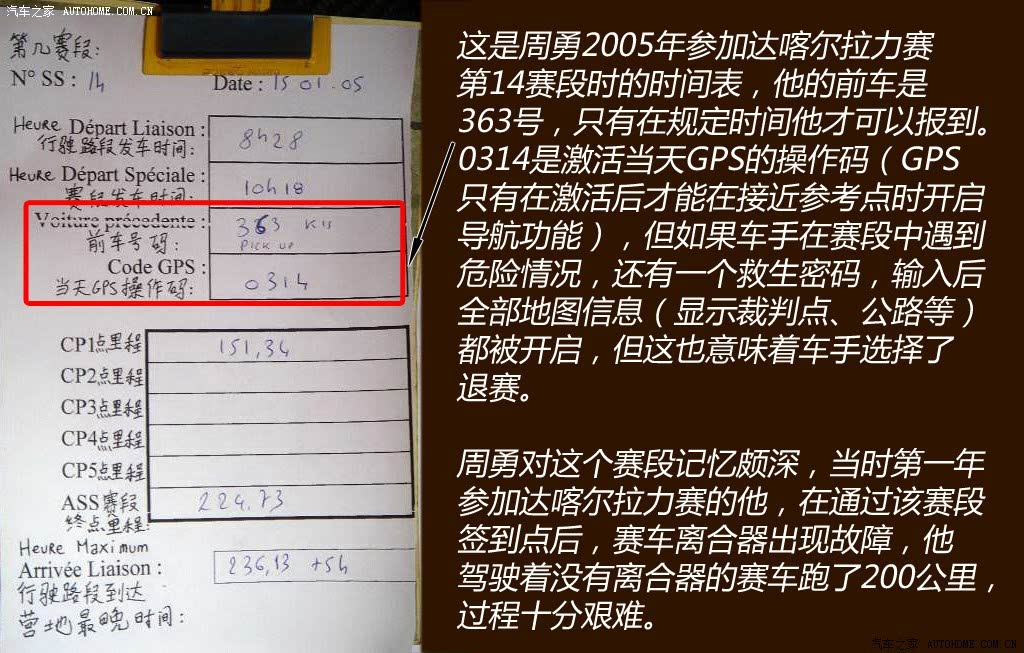 汽车之家 AUTOHOME.COM.CN
第几赛段:
N° SS : 14 Date : 15 01.05
Heure Départ Liaison : 8h28
行驶路段发车时间:
Heure Départ Spéciale : 10h18
赛段发车时间:
Voiture précédente : 363
前车号码: PICK UP
Code GPS : 0314
当天GPS操作码:
CP1点里程 151,34
CP2点里程
CP3点里程
CP4点里程
CP5点里程
ASS赛段 224,73
终点里程:
Heure Maximum
Arrivée Liaison : 236,13 +5h
行驶路段到达
营地最晚时间:
这是周勇2005年参加达喀尔拉力赛
第14赛段时的时间表，他的前车是
363号，只有在规定时间他才可以报到。
0314是激活当天GPS的操作码（GPS
只有在激活后才能在接近参考点时开启
导航功能），但如果车手在赛段中遇到
危险情况，还有一个救生密码，输入后
全部地图信息（显示裁判点、公路等）
都被开启，但这也意味着车手选择了
退赛。
周勇对这个赛段记忆颇深，当时第一年
参加达喀尔拉力赛的他，在通过该赛段
签到点后，赛车离合器出现故障，他
驾驶着没有离合器的赛车跑了200公里，
过程十分艰难。
汽车之家 AUTOHOME.COM.CN